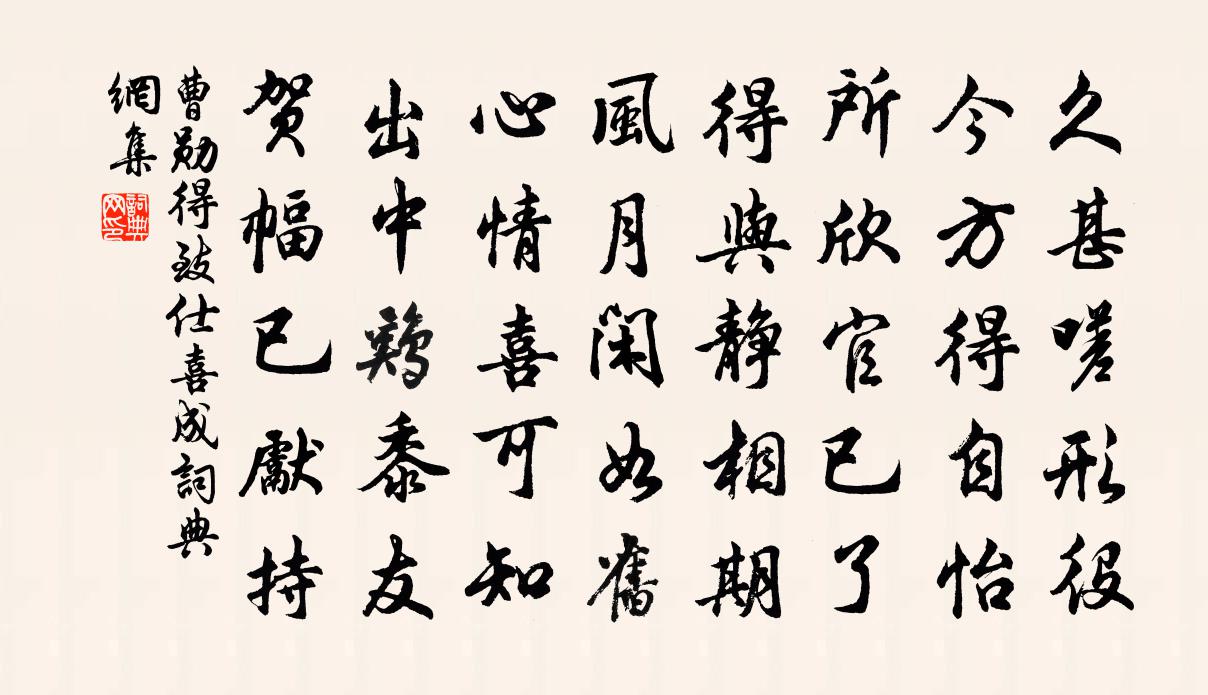 久甚嗟形役
今方得自怡
所欣官已了
得與静相期
風月闲如舊
心情喜可知
出中鷄黍友
贺幅已獻持
曹勛得致仕喜成詞典
網集
詞典网印